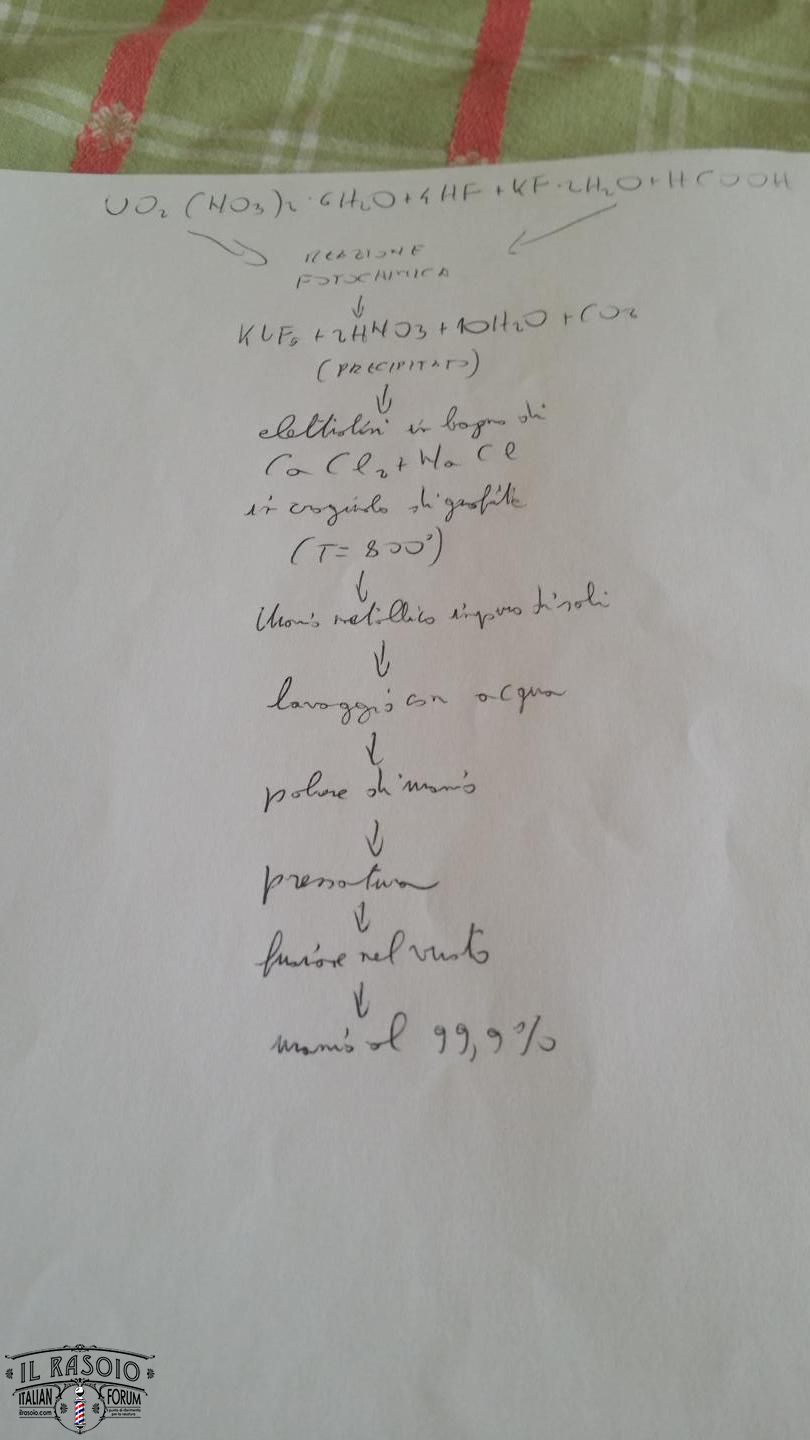 UO₂(NO₃)₂·6H₂O+4HF+KF·2H₂O+HCOOH
REAZIONE
FOTOCHIMICA
KUF₅+2HNO₃+10H₂O+CO₂
(PRECIPITATO)
elettrolisi in bagno di
CaCl₂+NaCl
in crogiuolo di grafite
(T=800°)
Uranio metallico impuro di sali
lavaggio con acqua
polvere di uranio
pressatura
fusione nel vuoto
uranio al 99,9%
IL RASOIO
ITALIAN FORUM
ilrasoio.com